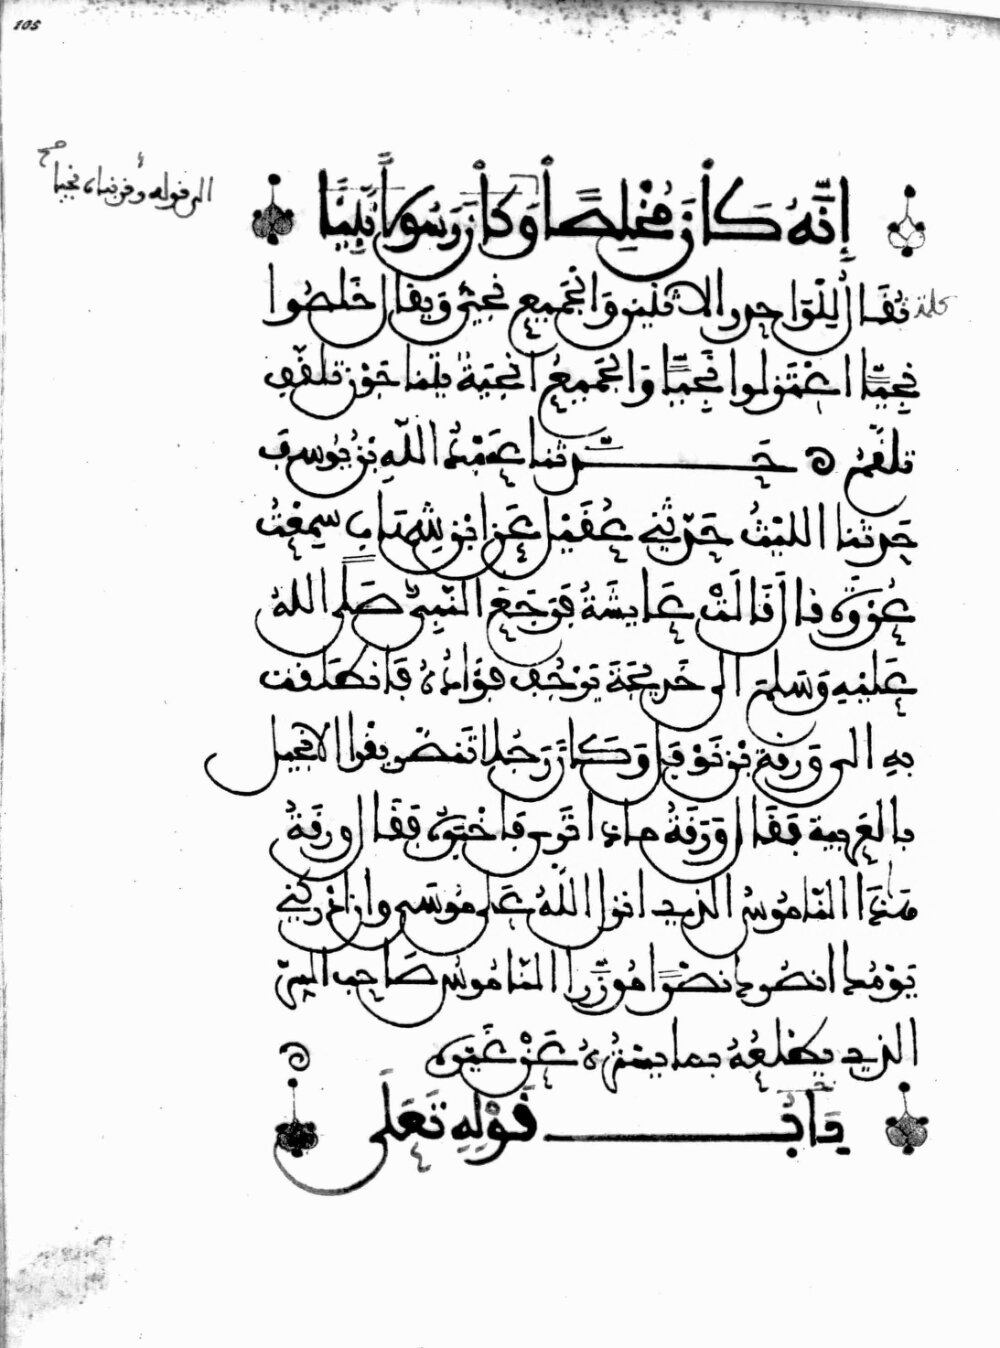 105
الى قوله وقربناه نجيا صح
إِنَّهُ كَانَ مُخْلِصًا وَكَانَ رَسُولًا نَبِيًّا
كلمه
تُقَالُ لِلْوَاحِدِ والاثنين وَالْجَمِيعِ نَجِيٌّ وَيقال خَلَصُوا
نَجِيًّا اعْتَزَلوا نَجِيًّا وَالْجَمِيعُ انْجِيَةٌ يتنَاجَوْن تلقّف
تلقّم حَدَّثنا عَبْدُ اللّهِ بْنُ يُوسف
حَدثنا الليْثُ حَدّثني عُقَيْل عَن ابْن شِهَاب سَمِعْتُ
عُرْوَةَ قال قَالَتْ عَايشَةُ فَرَجَعَ النَّبِيُّ صَلَّى اللهُ
عَلَيْهِ وَسَلم الى خَدِيجَةَ يَرْجُفُ فؤَادُهُ فَانْطَلَقت
بِهِ الى وَرَقَة بْن نَوْفَل وَكَانَ رَجُلا تَنَصَّر يقرا الانجيل
بالعَربية فَقَال وَرَقَةُ ماذا تَرى فَاخْبَرَهُ فَقَال ورقةُ
هَذَا النّامُوسُ الذي انزل اللّهُ عَلى مُوسَى وان ادْركَني
يَوْمُك انصُرك نَصْرًا مُؤزّرا النّامُوسُ صَاحِب السِّرّ
الذي يُطْلِعُهُ بما يسْتُرُهُ عَنْ غَيْرِه
بَابُ قَوْلِهِ تَعَلَى